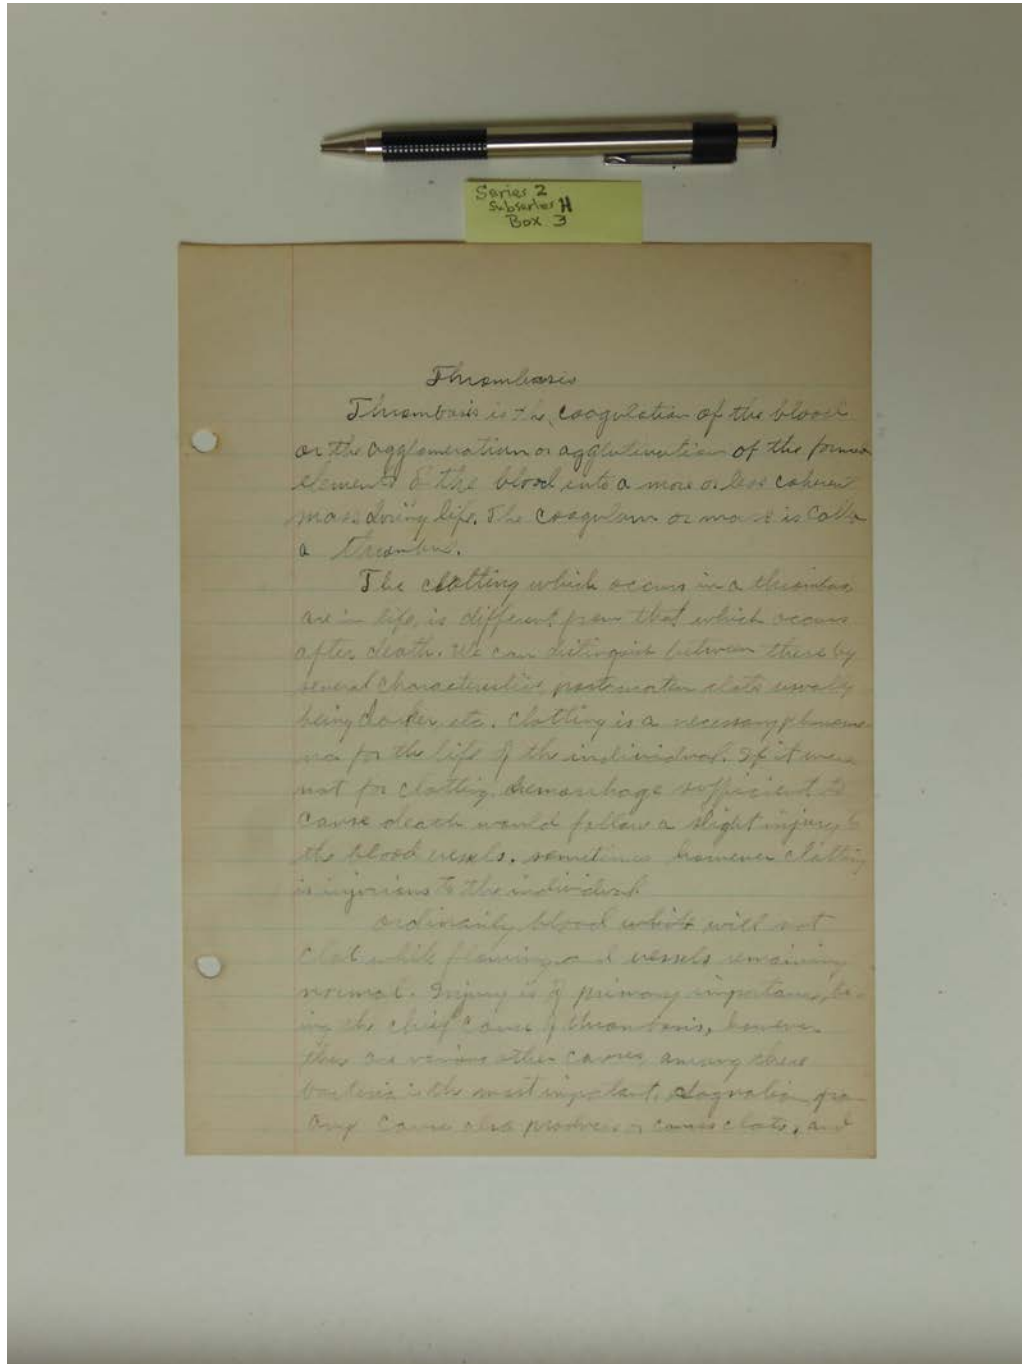 Series 2
Subseries H
Box 3
Thrombosis
Thrombosis is the coagulation of the blood
or the agglomeration or agglutination of the formed
elements of the blood into a more or less coherent
mass during life. The coagulum or mass is
a
The clotting which occurs in a
in life, is different from that which occurs
after death. We can distinguish between these by
several characteristics, postmortem clots usually
being darker, etc. Clotting is a necessary
for the life of the individual. If it were
not for clotting, hemorrhage sufficient to
cause death would follow a slight injury to
the blood vessels. sometimes however clotting
is injurious to the individual
ordinarily blood will not
clot while flowing and vessels remaining
normal. Injury is of primary importance, be-
ing the chief cause of thrombosis, however
there are various other causes, among these
bacteria is the most important. from
any cause also produces or causes clots, and